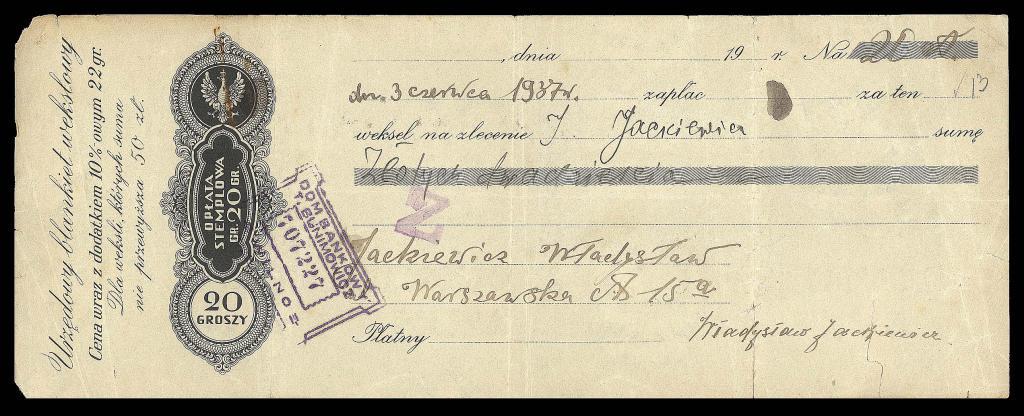 Urzędowy blankiet wekslowy
Cena wraz z dodatkiem 10%-owym 22 gr.
Dla weksli, których suma
nie przewyższa 50 zł.
OPŁATA
STEMPLOWA
GR. 20 GR.
20
GROSZY
, dnia 19 r. Na 20 zł.
dn. 3 czerwca 1937 r. zapłac za ten 13
weksel na zlecenie J. Jackiewicz sumę
Złotych dwadzieścia
DOM BANKOWY
T. BUNIMOWICZ
07227
WILNO
N
Jackiewicz Władysław
Warszawska № 15a
Płatny
Władysław Jackiewicz